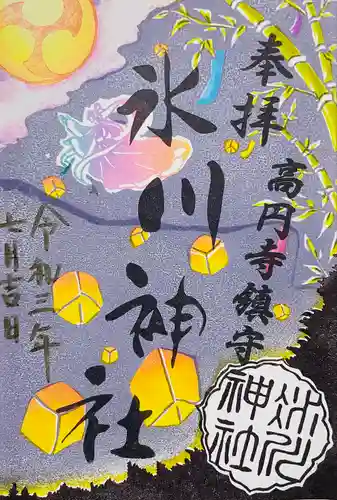 奉拝
高円寺鎮守
氷川神社
令和三年
七月吉日
氷川
神社